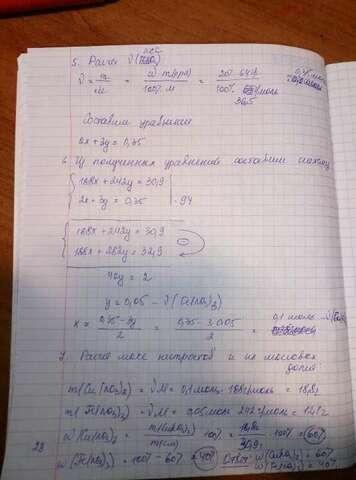 5. Расчет ν(HCl)
ν = m/M = ω·m(р-ра)/100%·M = 20%·64г/100%·36,5г/моль = 0,35 моль
Составим уравнение
2x + 3y = 0,35
6. Из полученных уравнений составим систему
188x + 242y = 30,9
2x + 3y = 0,35 | ·94
188x + 242y = 30,9
188x + 282y = 32,9
40y = 2
y = 0,05 - ν(Fe(NO3)3)
x = 0,35-3y/2 = 0,35-3·0,05/2 = 0,1 моль
7. Расчет масс нитратов и их массовых
долей
m(Cu(NO3)2) = νM = 0,1моль·188г/моль = 18,8г
m(Fe(NO3)3) = νM = 0,05моль·242г/моль = 12,1г
ω(Cu(NO3)2 = m(Cu(NO3)2)/m(см) ·100% = 18,8г/30,9г ·100% = 60%
ω(Fe(NO3)3 = 100% - 60% = 40% Ответ: ω(Cu(NO3)2) = 60%
ω(Fe(NO3)3) = 40%
28